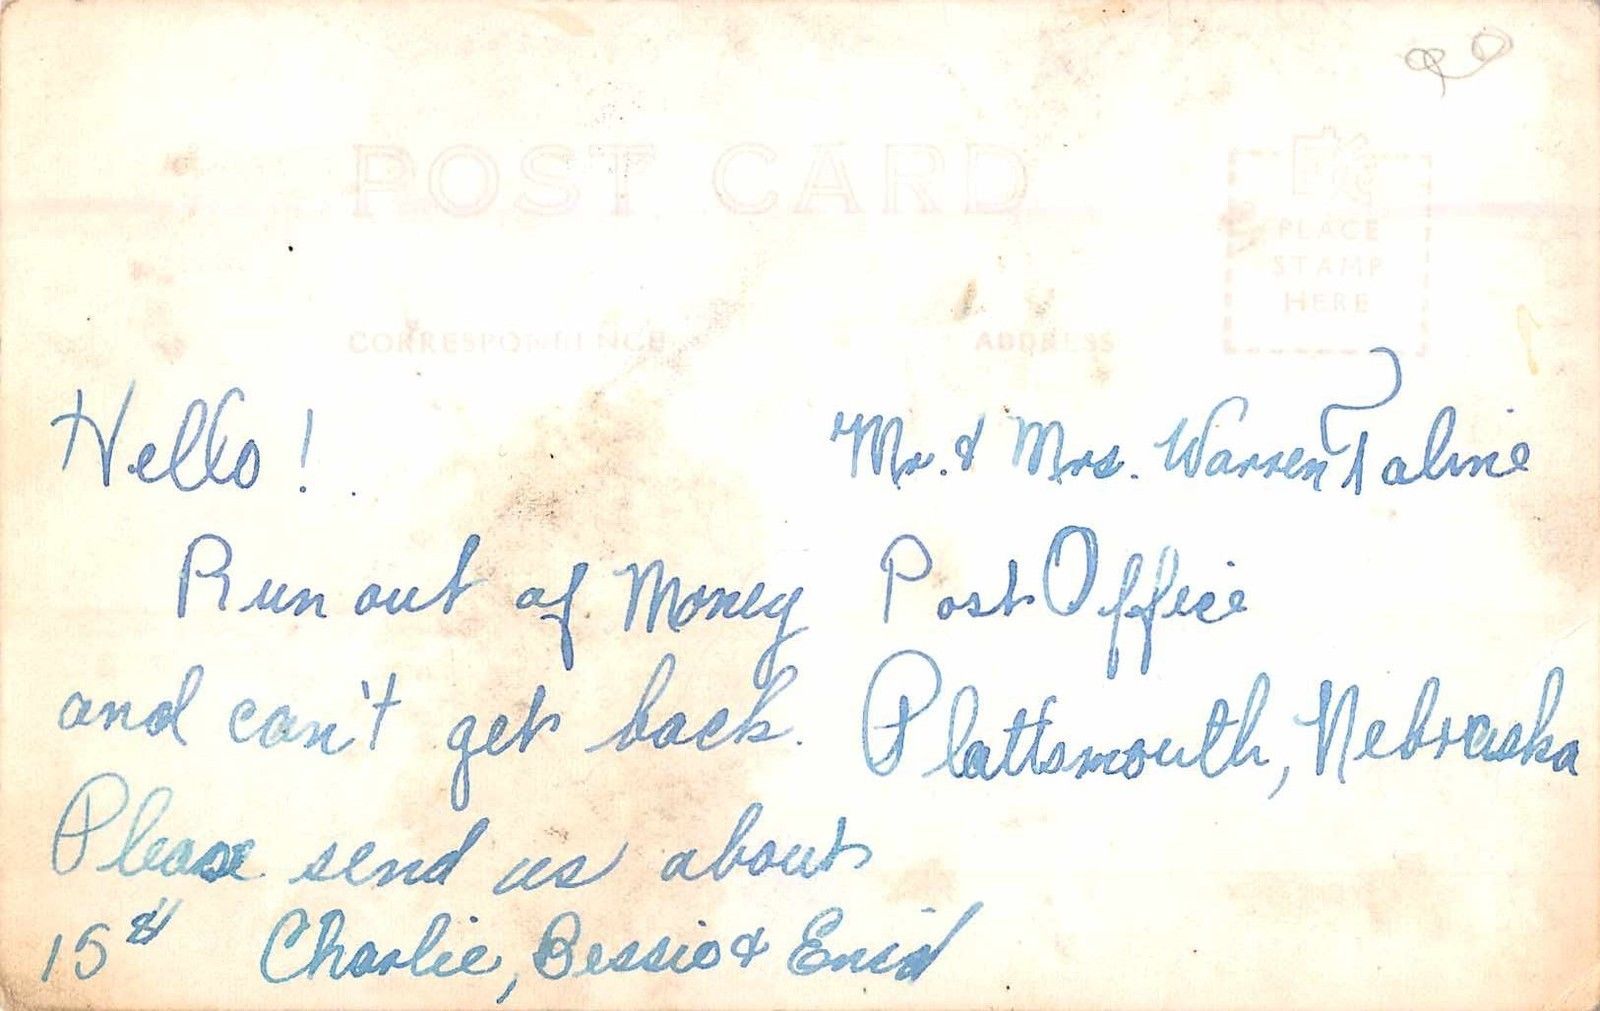 POST CARD
PLACE
STAMP
HERE
CORRESPONDENCE
ADDRESS
Hello!
Run out of Money
and can't get back.
Please send us about
15
Charlie, Bessie & Enid
Mr. & Mrs. Warren
Post Office
Plattsmouth, Nebraska